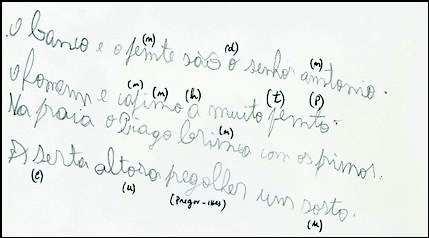 O banco e o femte são o senhor amtomo.
(m) (d) (m)
O fomem e cafimo á muito femto.
(m) (m) (h) (t) (p)
Na praia o Tiago brimca com os primos.
(m)
A serta altora pegolher um sosto.
(c) (u) (Pregar-lhes) (u)